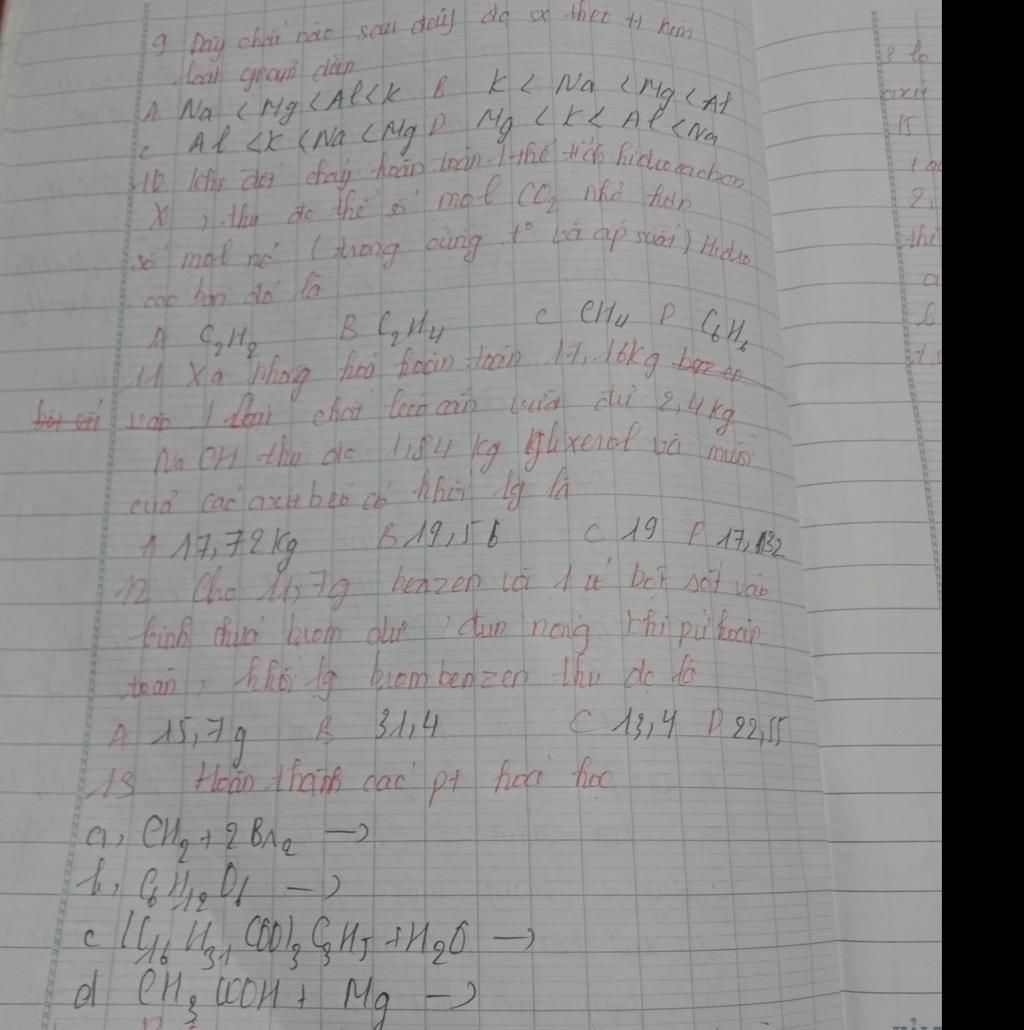 9 Dãy chất nào sau đây đc sx theo tt kim
loại giảm dần
A Na < Mg < Al < K B K < Na < Mg < Al
C Al < K < Na < Mg D Mg < K < Al < Na
10 Khi đốt cháy hoàn toàn 1 thể tích hidrocacbon
X, thu đc thể số mol CO2 nhỏ hơn
số mol nc (trong cùng t° và áp suất) Hidro
cacbon đó là
A C2H2 B C2H4 C CH4 D C6H6
11 Xà phòng hoá hoàn toàn 17,16kg
1 loại chất béo cần vừa đủ 2,4kg
NaOH thu đc 1,84 kg glixerol và muối
của các axit béo có khối lg là
A 17,72kg B 19,56 C 19 D 17,132
12 Cho 11,7g benzen và 1 ít bột sắt vào
bình chứa brom dư, đun nóng khi pứ hoàn
toàn, khối lg brombenzen thu đc là
A 15,7g B 31,4 C 13,4 D 22,55
13 Hoàn thành các pt hoá học
a, CH2 + 2Br2 →
b, C6H12O6 →
c (C16H31COO)3C3H5 + H2O →
d CH3COOH + Mg →
axit
15
2,
thể
a
b